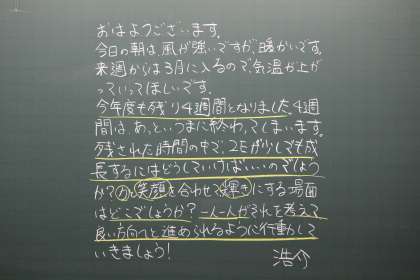 おはようございます。
今日の朝は、風が強いですが、暖かいです。
来週からは3月に入るので、気温が上が
っていってほしいです。
今年度も残り4週間となりました。4週
間は、あっというまに終わってしまいます。
残された時間の中で、2Eが少しでも成
長するにはどうしていけばいいのでしょう
か?力、笑顔を合わせて輝きにする場面
はどこでしょうか?一人一人がそれを考えて
良い方向へと進められるように行動して
いきましょう!
浩介